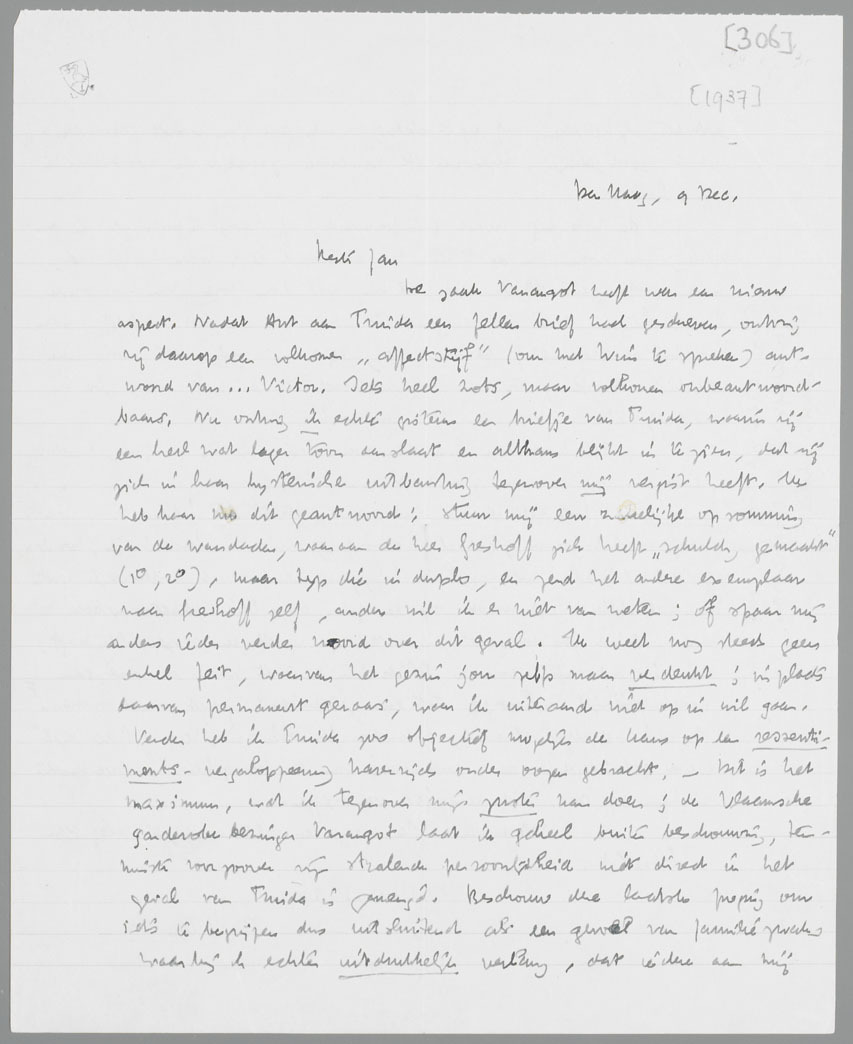 [306]
[1937]
Den Haag, 9 Dec.
Beste Jan
De zaak Varangot heeft weer een nieuw
aspect. Nadat Ant aan Truida een fellen brief had geschreven, ontving
zij daarop een volkomen „affectstijf" (om met te spreken) ant-
woord van... Victor. Iets heel zots, maar volkomen onbeantwoord-
baars. Nu ontving ik echter gisteren een briefje van Truida, waarin zij
een heel wat lager toon aanslaat en althans blijkt in te zien, dat zij
zich in haar hysterische uitbarsting tegenover mij vergist heeft. Ik
heb haar nu dit geantwoord: stuur mij een zakelijke opsomming
van de wandaden, waaraan de heer Greshoff zich heeft „schuldig gemaakt"
(1º, 2º), maar typ die in duplo, en zend het andere exemplaar
naar Greshoff zelf, anders wil ik er niet van weten; of spaar mij
anders ieder verder woord over dit geval. Ik weet nog steeds geen
enkel feit, waarvan het gezin jou zelfs maar verdenkt; in plaats
daarvan permanent geraas, waar ik uiteraard niet op in wil gaan.
Verder heb ik Truida zoo objectief mogelijk de kans op een ressenti-
ments-vergaloppeering harerzijds onder oogen gebracht. – Dit is het
maximum, wat ik tegenover mijn zuster kan doen; de Vlaamsche
Varangot laat ik geheel buiten beschouwing, ten-
minste voorzoover zijn stralende persoonlijkheid niet direct in het
geval van Truida is gemengd. Beschouw deze laatste poging om
iets te begrijpen dus uitsluitend als een gevoel van familie
waarbij ik echter uitdrukkelijk verlang, dat iedere aan mij